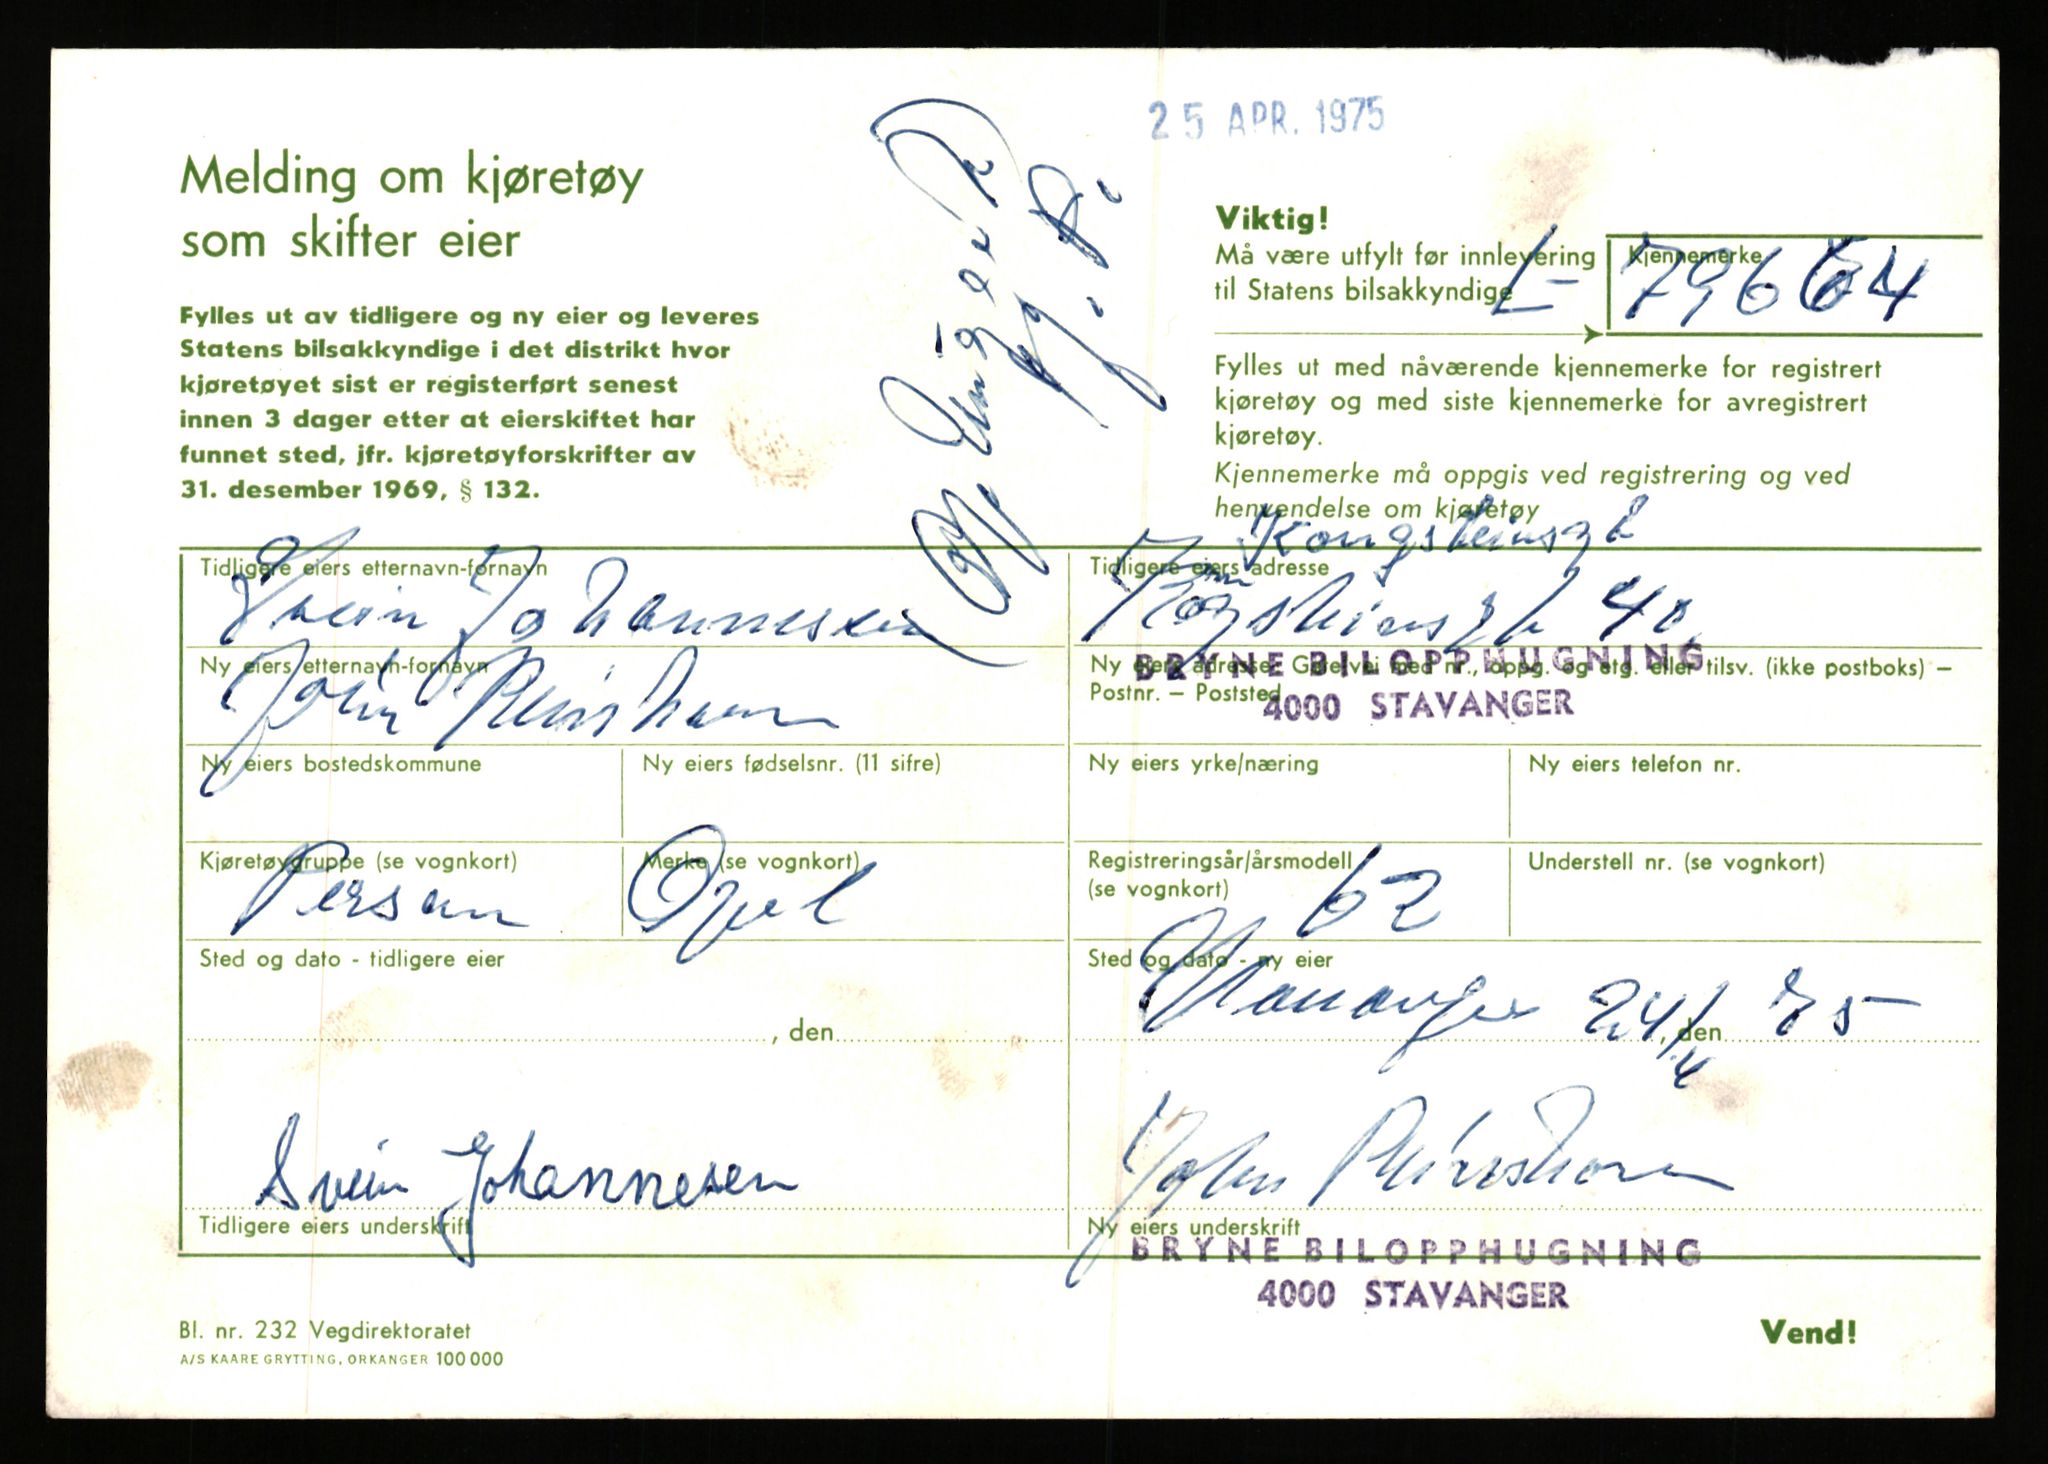 25 APR. 1975
Melding om kjøretøy
som skifter eier
Viktig!
Må være utfylt før innlevering
til Statens bilsakkyndige
L-
Kjennemerke
79664
Fylles ut av tidligere og ny eier og leveres
Statens bilsakkyndige i det distrikt hvor
kjøretøyet sist er registerført senest
innen 3 dager etter at eierskiftet har
funnet sted, jfr. kjøretøyforskrifter av
31. desember 1969, § 132.
Fylles ut med nåværende kjennemerke for registrert
kjøretøy og med siste kjennemerke for avregistrert
kjøretøy.
Kjennemerke må oppgis ved registrering og ved
henvendelse om kjøretøy
Tidligere eiers etternavn-fornavn
Svein Johannesen
Tidligere eiers adresse
Kongsteinsgt
40
Ny eiers etternavn-fornavn
John
Ny eiers adresse: Gate/vei med nr., oppg. og etg. eller tilsv. (ikke postboks) –
Postnr. – Poststed
BRYNE BILOPPHUGNING
4000 STAVANGER
Ny eiers bostedskommune
Ny eiers fødselsnr. (11 sifre)
Ny eiers yrke/næring
Ny eiers telefon nr.
Kjøretøygruppe (se vognkort)
Person
Merke (se vognkort)
Opel
Registreringsår/årsmodell
(se vognkort)
62
Understell nr. (se vognkort)
Sted og dato - tidligere eier
, den
Sted og dato - ny eier
Stavanger 24/4, den 75
Svein Johannesen
Tidligere eiers underskrift
John
Ny eiers underskrift
BRYNE BILOPPHUGNING
4000 STAVANGER
Bl. nr. 232 Vegdirektoratet
A/S KAARE GRYTTING, ORKANGER 100 000
Vend!